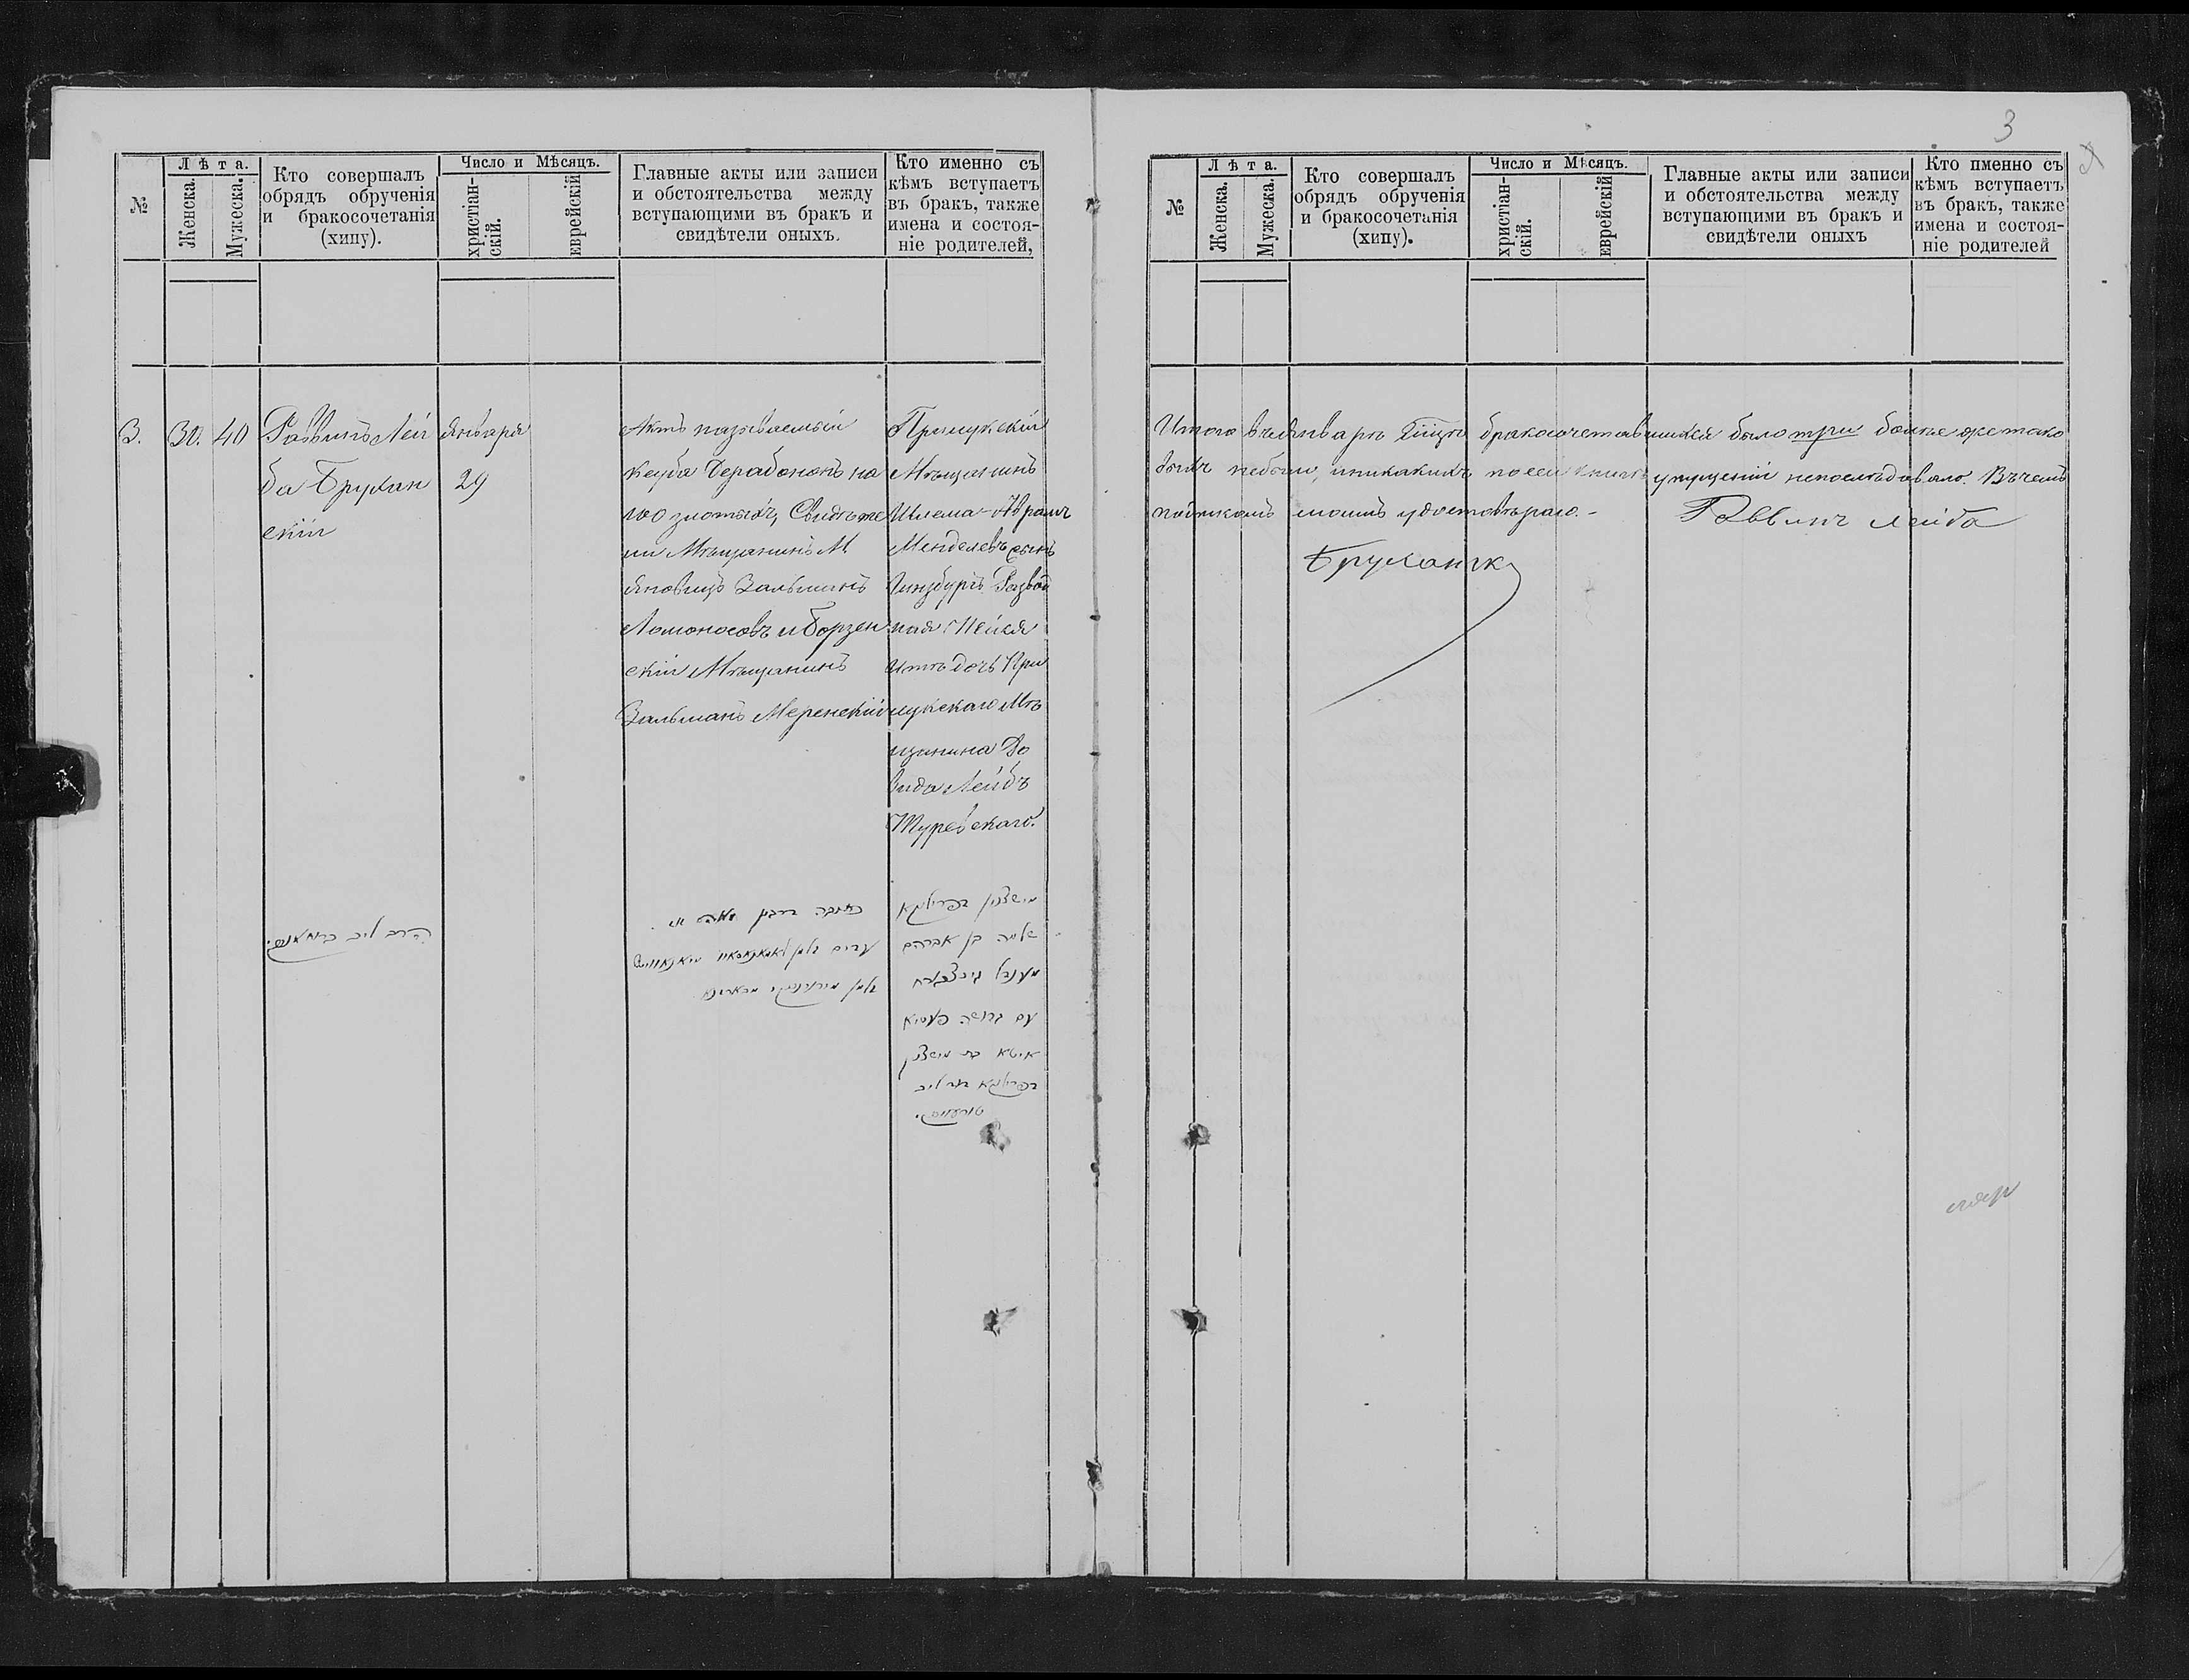 3
№
Лѣта.
Женска.
Мужеска.
Кто совершалъ
обрядъ обрученія
и бракосочетанія
(хипу).
Число и Мѣсяцъ.
христіан-
скій.
еврейскій
Главные акты или записи
и обстоятельства между
вступающими въ бракъ и
свидѣтели оныхъ.
Кто именно съ
кѣмъ вступаетъ
въ бракъ, также
имена и состоя-
ніе родителей,
3.
30.
40
Раввинъ Лей
ба Брухан
скій
Января
29
Актъ называемый
на
100 злотыхъ, Свидѣте
ли Мѣщанинъ М
Яновицъ Зальманъ
Ломоносовъ и Борзен
скій Мѣщанинъ
Зальманъ Меренскій
Прилукскій
Мѣщанинъ
Шлема-Аврамъ
Менделевъ сынъ
Гинзбургъ Развод
ная Пейся
Итта дочь При
лукскаго Мѣ
щанина До
вида Лейбъ
Туревскаго.
הרב ליב
עדים זלמן
זלמן
מישצנין דפרילוקא
שלמה בן אברהם
מענדל גינצבורג
עם גרושה פעסיא
איטא בת מישצנין
דפרילוקא דוד ליב
№
Лѣта.
Женска.
Мужеска.
Кто совершалъ
обрядъ обрученія
и бракосочетанія
(хипу).
Число и Мѣсяцъ.
христіан-
скій.
еврейскій
Главные акты или записи
и обстоятельства между
вступающими въ бракъ и
свидѣтели оныхъ
Кто именно съ
кѣмъ вступаетъ
въ бракъ, также
имена и состоя-
ніе родителей
Итого въ Январѣ бракосочетавшихся было три болѣе же тако
выхъ небыло, иникакихъ по сей книгѣ упущеній непослѣдовало. Въ чемъ
подписомъ моимъ удостовѣряю. - Раввинъ Лейба
Бруханск